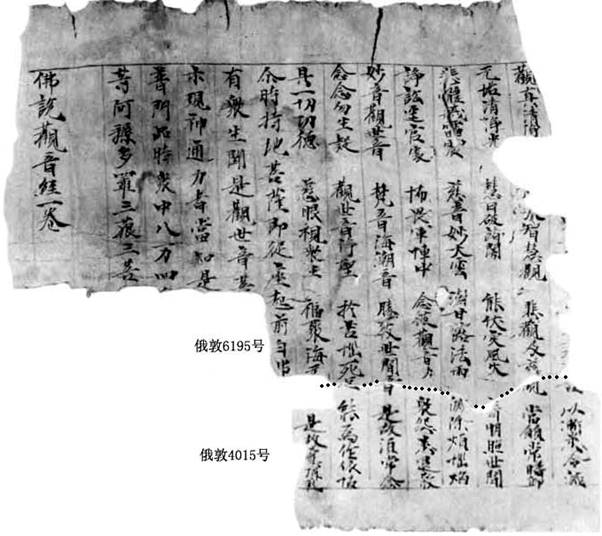 以漸悉令滅
觀真清淨 大智慧觀 悲觀及慈觀 常願常瞻仰
无垢清淨光 慧日破諸闇 能伏災風火 普明照世間
悲體戒雷震 慈音妙大雲 澍甘露法雨 滅除煩惱焰
諍訟逕官處 怖畏軍陣中 念彼觀音力 眾怨悉退散
妙音觀世音 梵音海潮音 勝彼世間音 是故須常念
念念勿生疑 觀世音淨聖 於苦惱死厄 能為作依怙
具一切功德 慈眼視眾生 福聚海无 是故應頂礼
尒時持地菩薩即從座起前白
有眾生聞是觀世音菩
示現神通力者當知是
普門品時眾中八万四
等阿耨多羅三藐三菩
佛說觀音經一卷
俄敦6195号
俄敦4015号